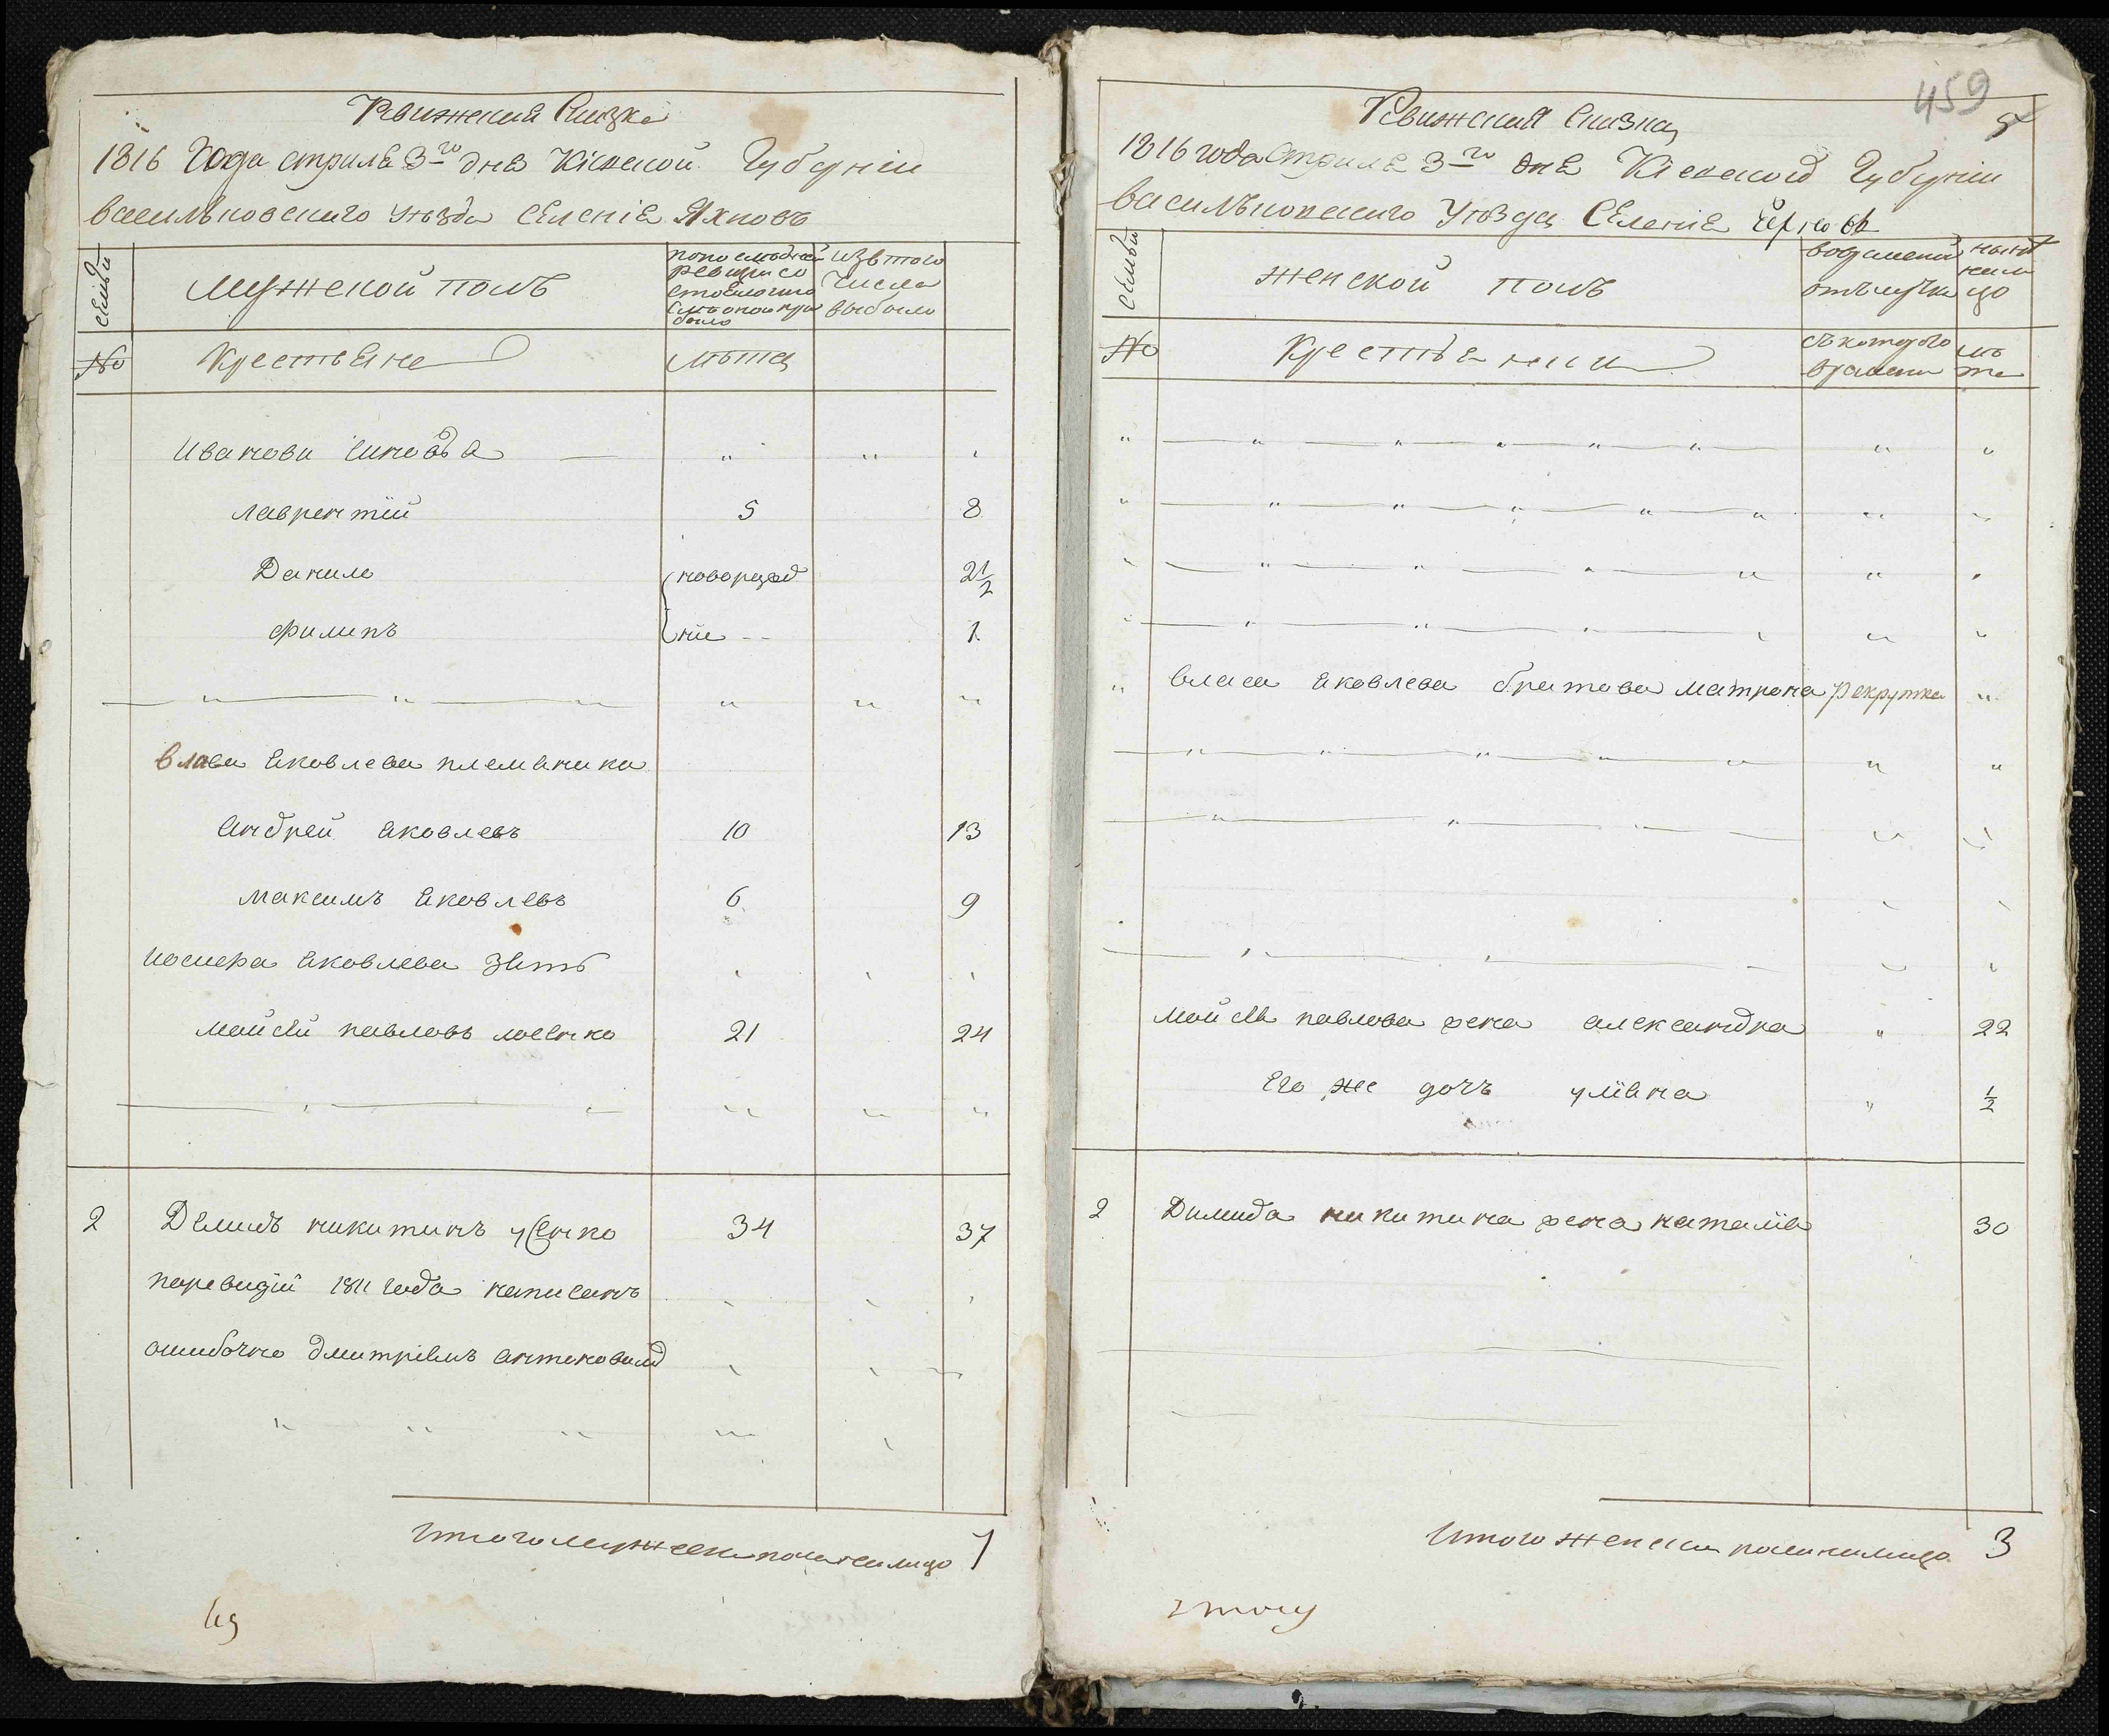 Ревижская Сказка
1816 Года априля 3го дня Кіевской Губерніи
васильковского уезда Селенія Яхновъ
семьи
мужеской полъ
По последней ревизіи состояло и после оной прибыло
изъ того числа выбыло
№
Крестьяне
лета
Иванови синовья — " " "
лаврентій 5 8
Данило новорожд 2½
филипъ ніе -- 1
власа яковлева племаника
андрей яковлевъ 10 13
максимъ яковлевъ 6 9
иосифа яковлева зять
мойсей павловъ моенко 21 24
2 Демидъ никитинъ усенко 34 37
поревизіи 1811 года написанъ
ошибочно дмитріемъ антоновимъ
Итого мужеска пола налицо 7
459
5
Ревижская Сказка
1816 года априля 3го дня Кіевской Губерніи
васильковского Уезда Селенія Яхновъ
семьи
женской полъ
вовременной отлучке
ныне налицо
№
Крестьянки
съ которого времени
лета
власа яковлева братова матрона рекрутка "
мойсея павлова жена александра " 22
Его же дочъ уліяна " ½
2 Димида никитина жена наталія 30
Итого женска пола налицо 3